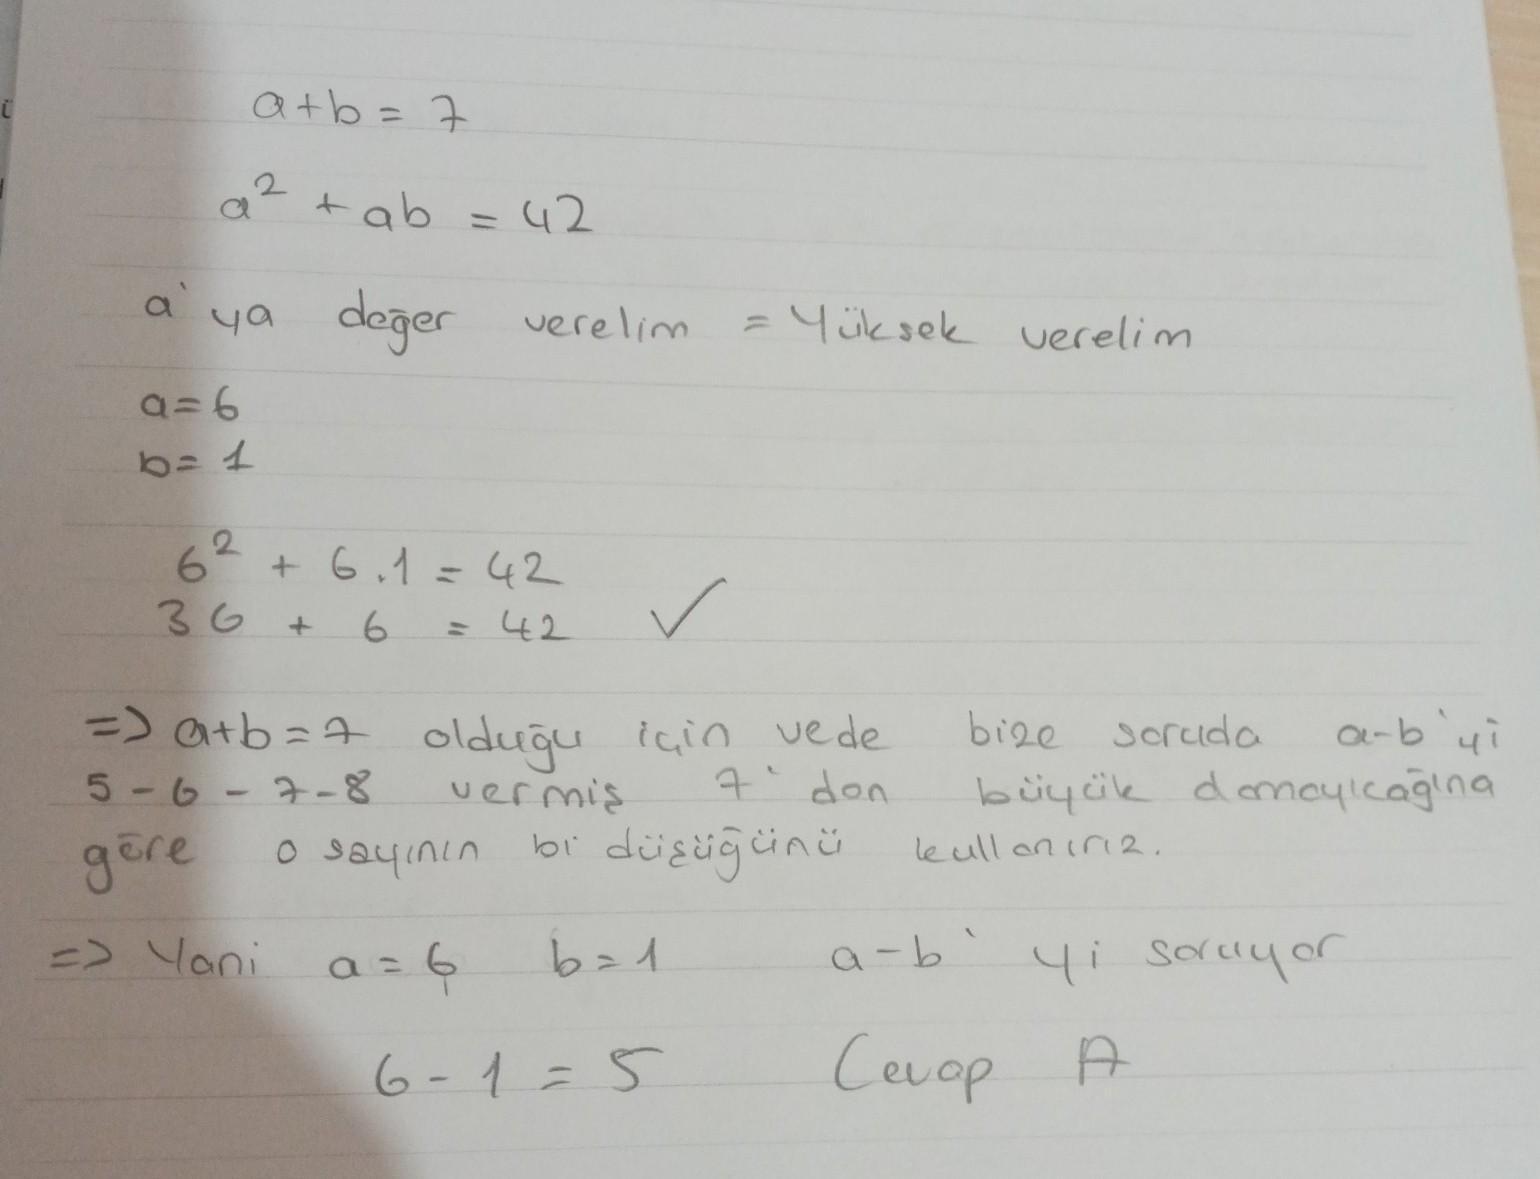 a+b = 7
a² + ab = 42
a' ya değer verelim = Yüksek verelim
a=6
b=1
6² + 6.1 = 42
36 + 6 = 42 ✓
=> a+b=7 olduğu için vede bize soruda a-b'yi
5-6-7-8 vermiş 7'den büyük olamayıcağına
göre o sayının bi düşüğünü kullanırız.
=> Yani a=6 b=1 a-b' yi soruyor
6-1=5 Cevap A